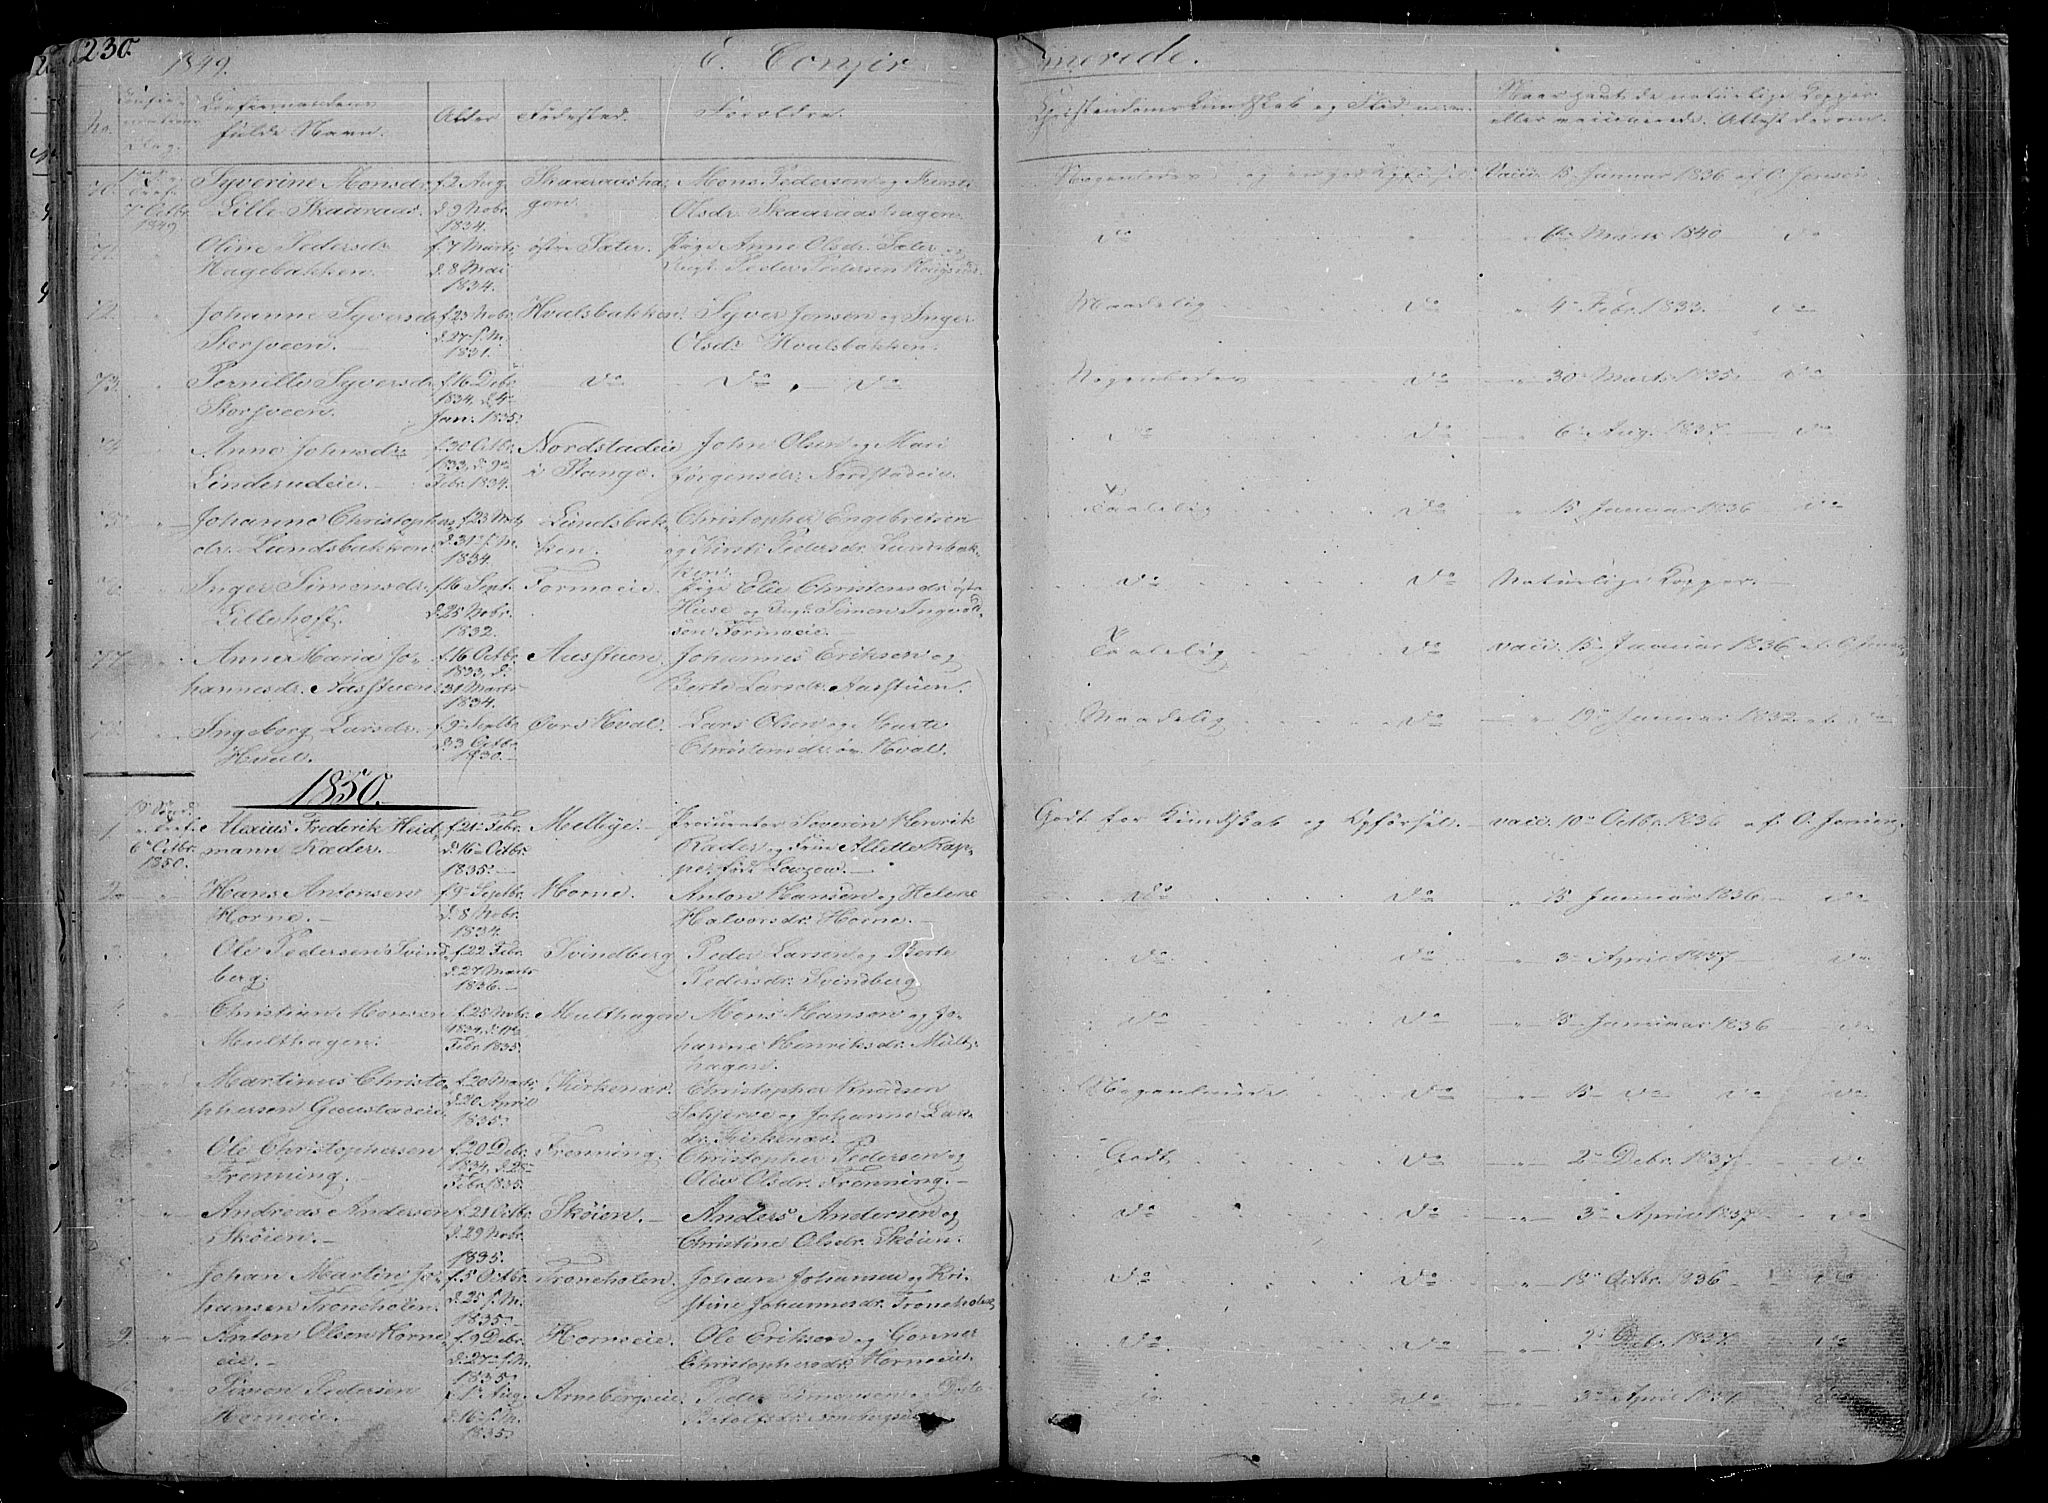 230.
1849.
C. Confirmerede.
No.
Confirmandens
fulde Navn.
Alder
Fødested.
Forældre.
Christendoms Kundskab og Flid
Naar havt de naturlige Kopper
eller vaccinerede. Attest derom.
7 Octbr.
1849
Syverine Monsdr.
Lille Skaaraas.
f. 2 Aug.
d. 9 Nobr.
1834.
Skaaraasha-
gen.
Mons Pedersen og
Olsdr. Skaaraashagen.
Nogenledes
Vacc. 15 Januar 1836 af O. Jensen
71.
Oline Pedersdr.
Hagebakken.
f. 7 Marts
d. 8 Mai
1834.
østre Sæter.
Pige Anne Olsdr. Sæter
Peder Pedersen
Do
6 Marts 1840 do
72.
Johanne Syversdr.
Storsveen.
f. 23 Nobr.
d. 27 s. M.
1831.
Hvalsbakken.
Syver Jensen og Inger
Olsdr. Hvalsbakken.
Maadelig do
4 Febr. 1833. do
73.
Pernille Syversdr.
Storsveen.
f. 16 Debr.
1834, d. 4
Jan. 1835.
do
do do
Nogenledes do
30 Marts 1835. do
74
Anne Johnsdr.
Linderudeie.
f. 30 Octbr.
1833, d. 9
Febr. 1834.
Nordstadeie
i Stange.
John Olsen og Mari
Jørgensdr. Nordstadeie.
do do
6 Aug. 1837. do
75
Johanne Christophers
dr. Lundsbakken.
f. 23 Marts
d. 31 s. M.
1834.
Lundsbak-
ken.
Christopher Engebretsen
og Kirsti Pedersdr. Lundsbak-
ken.
Taalelig do
15 Januar 1836 do
76
Inger Simensdr.
Lillehoff.
f. 16 Sept.
d. 25 Nobr.
1832.
Formoeie.
Pige Elie Christensdr. østre
Huse og Simen Ingvold-
sen Formoeie.
do do
Naturlige Kopper.
77
Anne Maria Jo-
hannesdr. Aasstuen.
f. 16 Octbr.
1833, d.
31 Marts
1834.
Aasstuen.
Johannes Eriksen og
Berte Larsdr. Aasstuen.
Taalelig do
vacc. 15 Januar 1836 af O. Jensen
78.
Ingeborg Larsdr.
Hval.
f. 9 Septbr.
d. 3 Octbr.
1830.
Hval
Lars Olsen og Marte
Christensdr. Hval.
Maadelig do
19 Januar 1832 af do
1850.
1.
6 Octbr.
1850.
Alexius Frederik Heid
mann Rader.
f. 21 Febr.
d. 16 Octbr.
1835.
Melbye.
Procurator Severin Henrik
Rader og Frue Alette Kap-
pe, født Lowzow.
Godt for Kundskab og Opførsel.
vacc. 10 Octbr. 1836 af O. Jensen
2.
Hans Antonsen
Horne.
f. 9 Septbr.
d. 8 Nobr.
1834.
Horne.
Anton Hansen og Helene
Halvorsdr. Horne.
do do
15 Januar 1836 do
3.
Ole Pedersen Svind
berg.
f. 22 Febr.
d. 27 Marts
1836.
Svindberg
Peder Larsen og Berte
Pedersdr. Svindberg
do do
3 April 1837 do
4.
Christian Monsen
Multhagen.
f. 25 Nobr.
1834, d. 11
Febr. 1835.
Multhagen
Mons Hansen og Jo-
hanne Henriksdr. Mult-
hagen.
do do
15 Januar 1836 do
5.
Martinus Christo
phersen Gaustadeie
f. 20 Marts
d. 20 April
1835.
Kirkenær.
Christopher Knudsen
Schjerve og Johanne Lars-
dr. Kirkenær.
Nogenlunde do
15 do do do
Ole Christophersen
Frenning.
f. 20 Debr.
1834, d. 28
Febr. 1835.
Frenning.
Christopher Pedersen og
Oliv Olsdr. Frenning.
Godt do
2 Debr. 1837 do
7.
Andreas Andersen
Skøien.
f. 21 Octbr.
d. 29 Nobr.
1835.
Skøien.
Anders Andersen og
Christine Olsdr. Skøien.
do do
3 April 1837 do
8
Johan Martin Jo-
hansen Troneholen.
f. 5 Octbr.
d. 25 s. M.
1835.
Troneholen.
Johan Johansen og Kri-
stine Johannesdr. Troneholen
do do
18 Octbr. 1836 do
9.
Anton Olsen Horne
eie.
f. 9 Debr.
d. 27 s. M.
1835.
Horneeie.
Ole Eriksen og Gonner
Christophersdr. Horneeie.
do do
2 Debr. 1837. do
Simen Pedersen
Horneeie.
f. 1 Aug.
d. 16 s. M.
1835
Arnebergseie
Peder Simensen og Dorte
Arnebergseie
do
3 April 1837 do